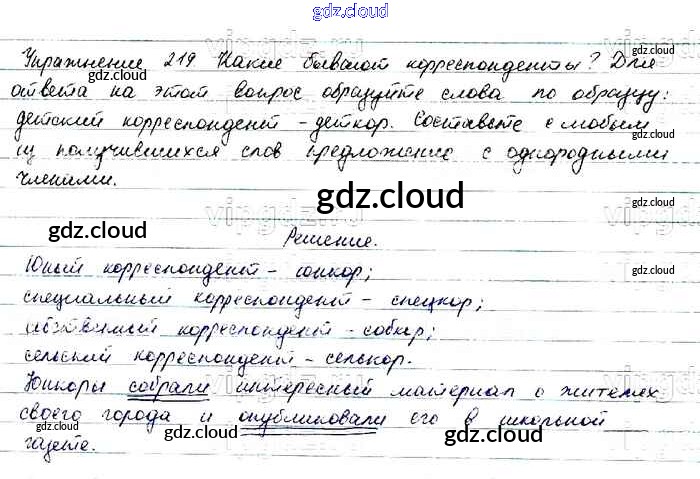 gdz.cloud
Упражнение 219 Какие бывают корреспонденты? Для
ответа на этот вопрос образуйте слова по образцу:
детский корреспондент - деткор. Составьте с любым
из получившихся слов предложение с однородными
членами.
Решение.
Юный корреспондент - юнкор;
специальный корреспондент - спецкор;
собственный корреспондент - собкор;
сельский корреспондент - селькор.
Юнкоры собрали интересный материал о жителях
своего города и опубликовали его в школьной
газете.